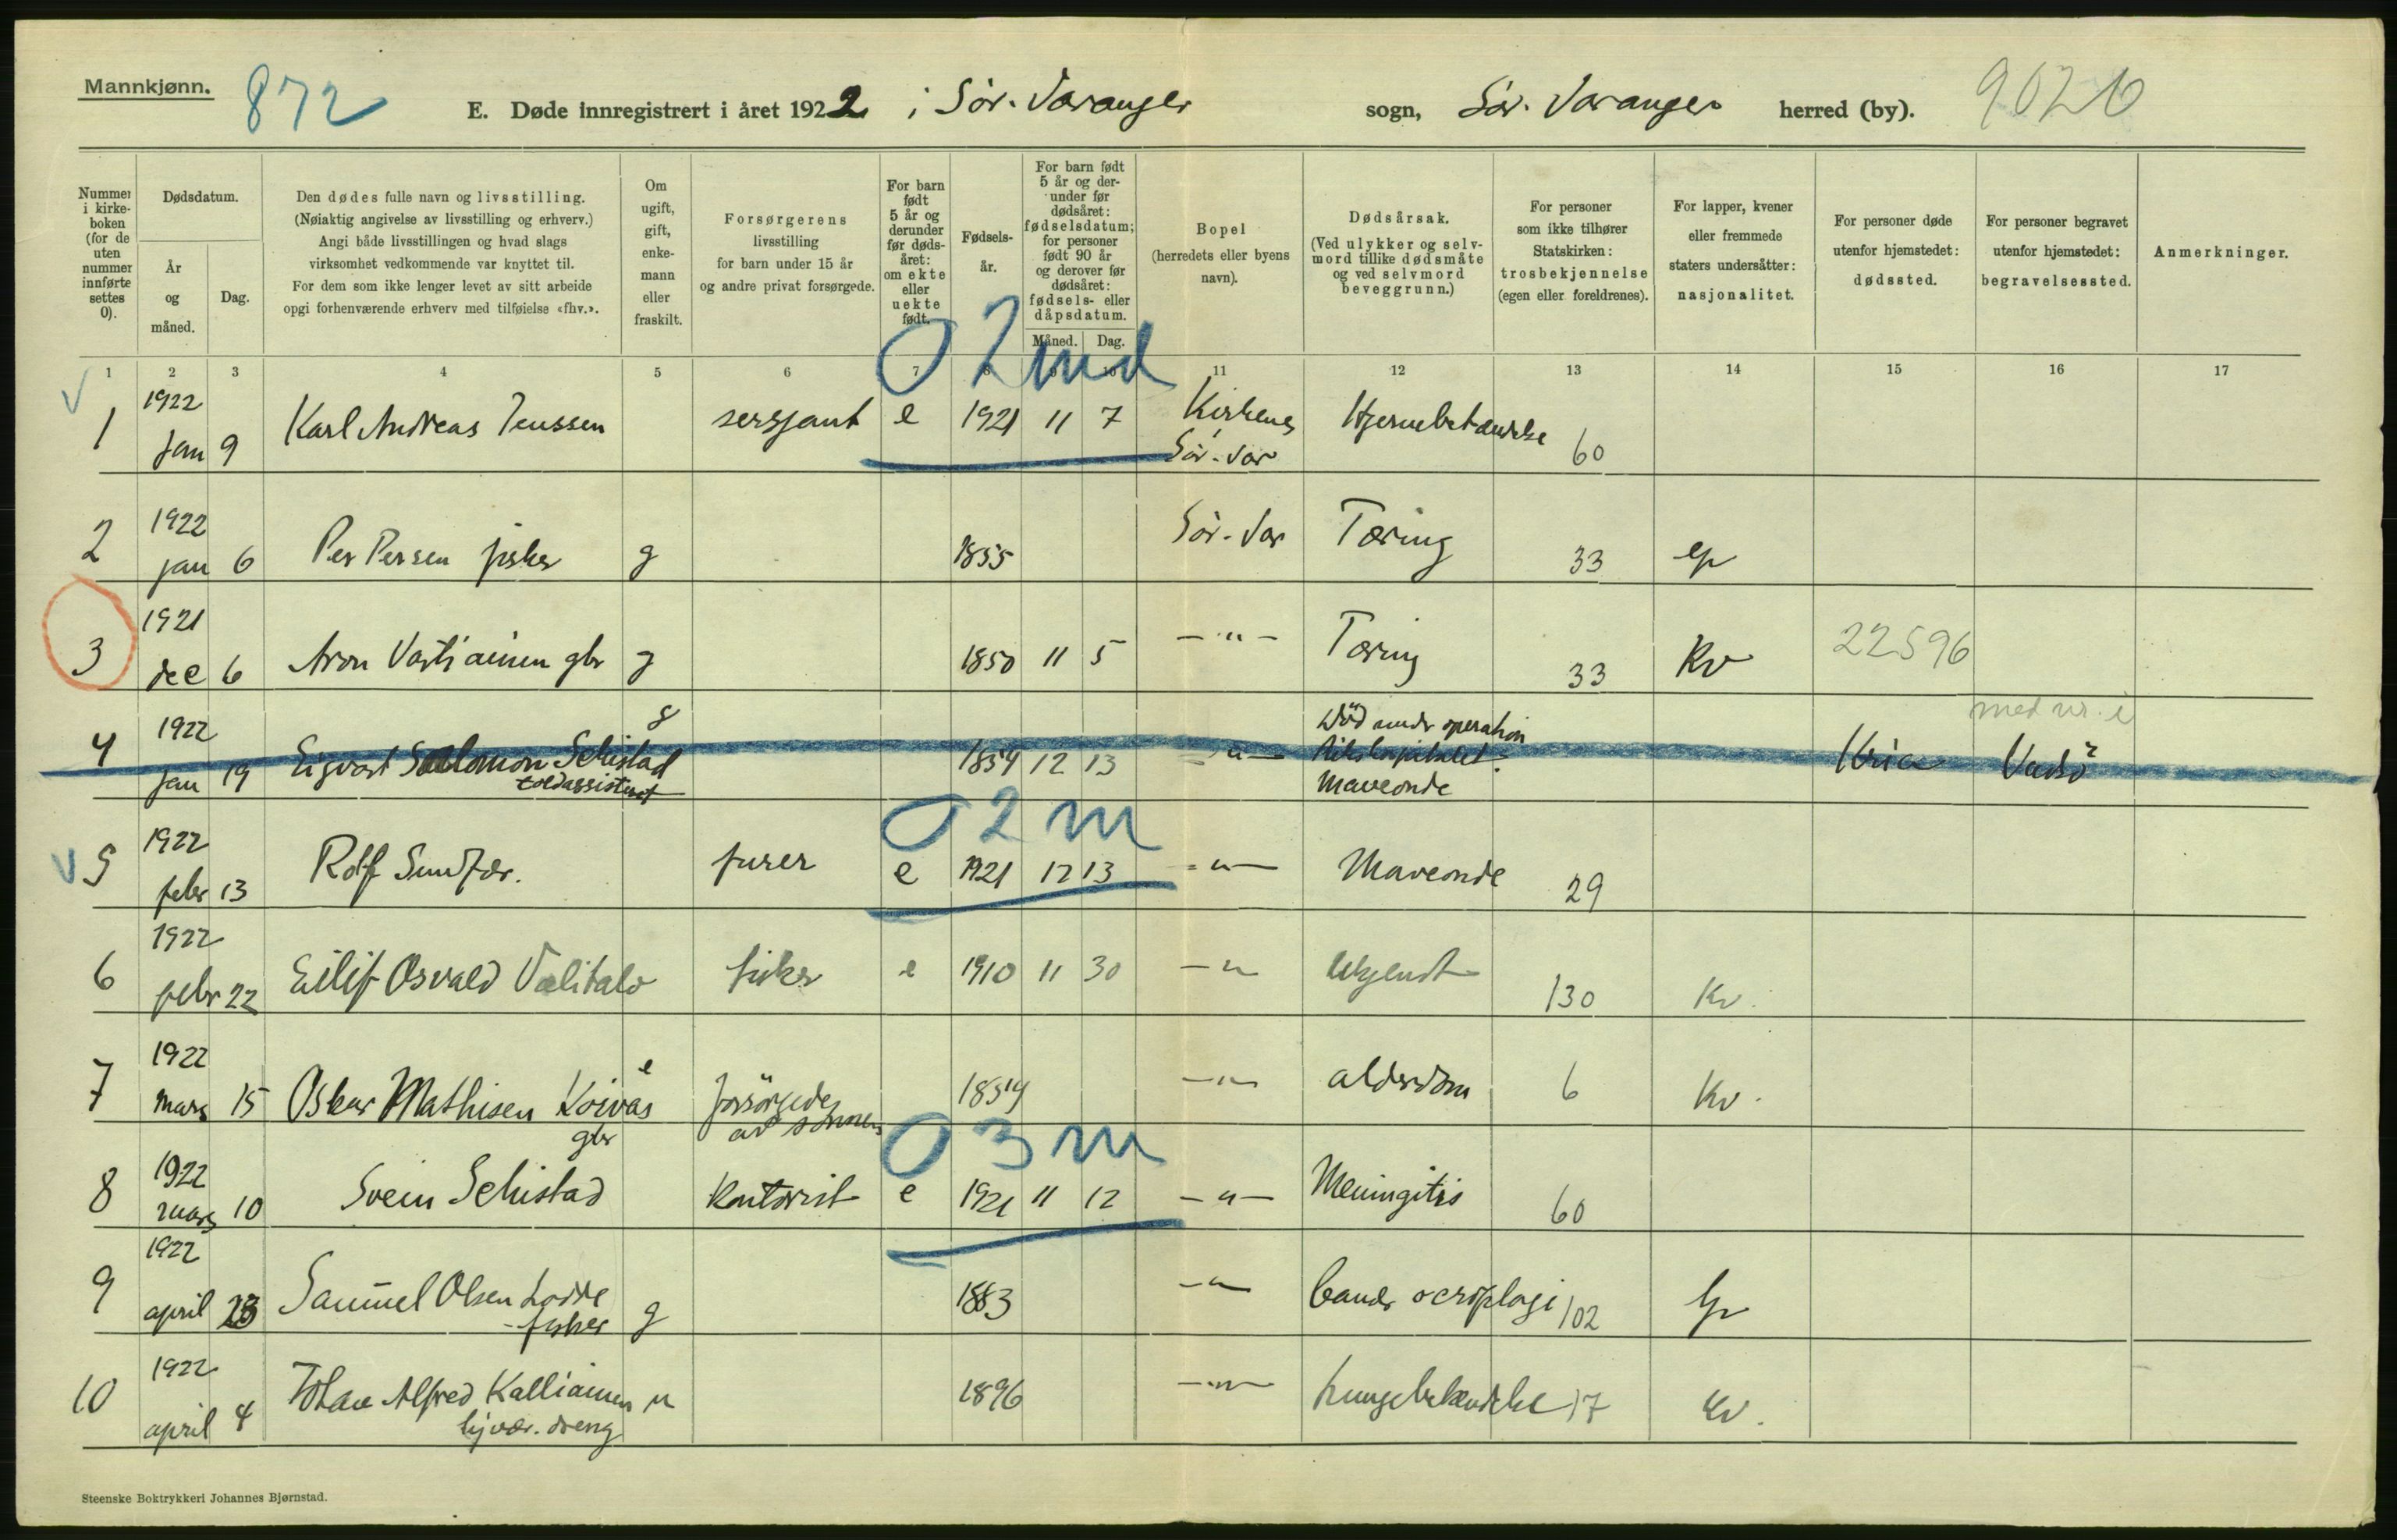 Mannkjønn.
872
E. Døde innregistrert i året 1922 i Sör. Varanger sogn, Sör. Varanger herred (by).
9026
Nummer i kirke-boken (for de uten nummer innførte settes 0).
Dødsdatum.
År og måned.
Dag.
Den dødes fulle navn og livsstilling.
(Nøiaktig angivelse av livsstilling og erhverv.)
Angi både livsstillingen og hvad slags
virksomhet vedkommende var knyttet til.
For dem som ikke lenger levet av sitt arbeide
opgi forhenværende erhverv med tilføielse «fhv.».
Om ugift, gift, enke-mann eller fraskilt.
Forsørgerens
livsstilling
for barn under 15 år
og andre privat forsørgede.
For barn født 5 år og derunder før døds-året: om ekte eller uekte født.
Fødsels-år.
For barn født 5 år og der-under før dødsåret: fødselsdatum; for personer født 90 år og derover før dødsåret: fødsels- eller dåpsdatum.
Måned. Dag.
Bopel
(herredets eller byens
navn).
Dødsårsak.
(Ved ulykker og selv-
mord tillike dødsmåte
og ved selvmord
beveggrunn.)
For personer
som ikke tilhører
Statskirken:
trosbekjennelse
(egen eller foreldrenes).
For lapper, kvener
eller fremmede
staters undersåtter:
nasjonalitet.
For personer døde
utenfor hjemstedet:
dødssted.
For personer begravet
utenfor hjemstedet:
begravelsessted.
Anmerkninger.
1 2 3 4 5 6 7 8 9 10 11 12 13 14 15 16 17
0 2 md
1 1922 jan 9 Karl Andreas Jenssen sersjant e 1921 11 7 Kirkenes Sör-Var Hjernebetændelse 60
2 1922 jan 6 Per Persen fisker g 1855 Sör-Var Tæring 33 lp
3 1921 dec 6 Aron Vartiainen gbr g 1850 11 5 -"- Tæring 33 Kv 22596
med nr. i
4 1922 jan 19 Sigvart Salomon Schistad toldassistent g 1854 12 13 -"- Död under operation Rikshospitalet. Mavеonde Kria Vadsö
0 2 m
5 1922 febr 13 Rolf Sundfær. furer e 1921 12 13 -"- Maveonde 29
6 1922 febr 22 Eilif Osvald Valitalo fisker e 1910 11 30 -"- Ukjendt 130 Kv.
7 1922 mars 15 Oskar Mathisen Koivas gbr e forsörgedes av sönnen 1854 -"- alderdom 6 Kv.
0 3 m
8 1922 mars 10 Svein Schistad Kontorist e 1921 11 12 -"- Meningitis 60
9 1922 april 23 Samuel Olsen Lodde - fisker g 1883 -"- 102 lp
10 1922 april 4 Johan Alfred Kalliainen u 1896 -"- Lungebetændelse 17 Kv.
Steenske Boktrykkeri Johannes Bjørnstad.